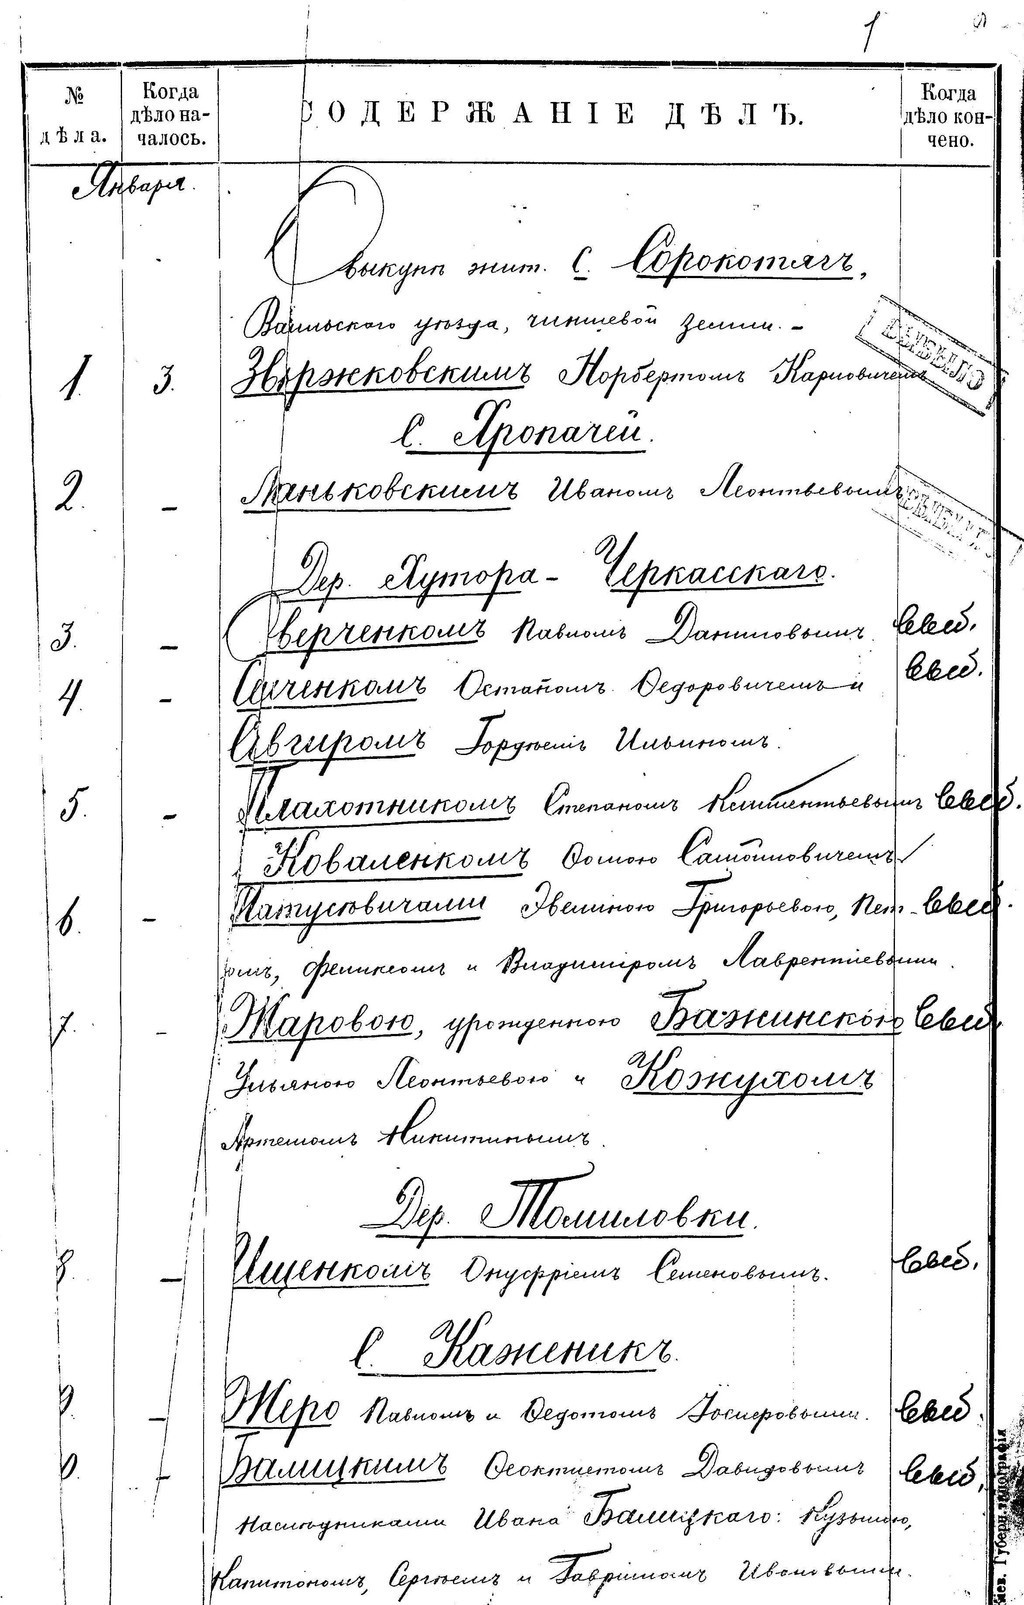 1
№ дѣла.
Когда дѣло на-чалось.
СОДЕРЖАНІЕ ДѢЛЪ.
Когда дѣло кон-чено.
Января.
О выкупѣ жит. С. Сорокотягъ,
уѣзда, чиншевой земли. –
ВЫБЫЛО
1. 3. Норбертомъ Карловичемъ
С. Хропачей.
2. – Маньковскимъ Иваномъ Леонтьевымъ
ВЫБЫЛО
Дер. Хутора – Черкасскаго.
3. – Сверченкомъ Павломъ Даниловымъ
4. – Остапомъ Ѳедоровичемъ и
Гордѣемъ Ильиномъ.
5. – Плахотникомъ Степаномъ Климентьевымъ
Коваленкомъ Ѳомою Самойловичемъ
6. – Эвелиною Григорьевою, Пет-
ромъ, Феликсомъ и Владимиромъ Лаврентіевыми.
7. – Жаровою, урожденною Бажинскою
Ульяною Леонтьевою и Кожухомъ
Артемомъ Никитинымъ.
Дер. Томиловки.
8. – Ищенкомъ Онуфріемъ Семеновымъ.
С. Каженикъ.
9. – Жеро Павломъ и Ѳедотомъ Іосифовыми.
0. – Балицкимъ Ѳеоктистомъ Давидовымъ
наслѣдниками Ивана Балицкаго: Кузьмою,
Капитономъ, Сергѣемъ и Гавріиломъ Ивановыми.
Кіев. Губерн. типографія